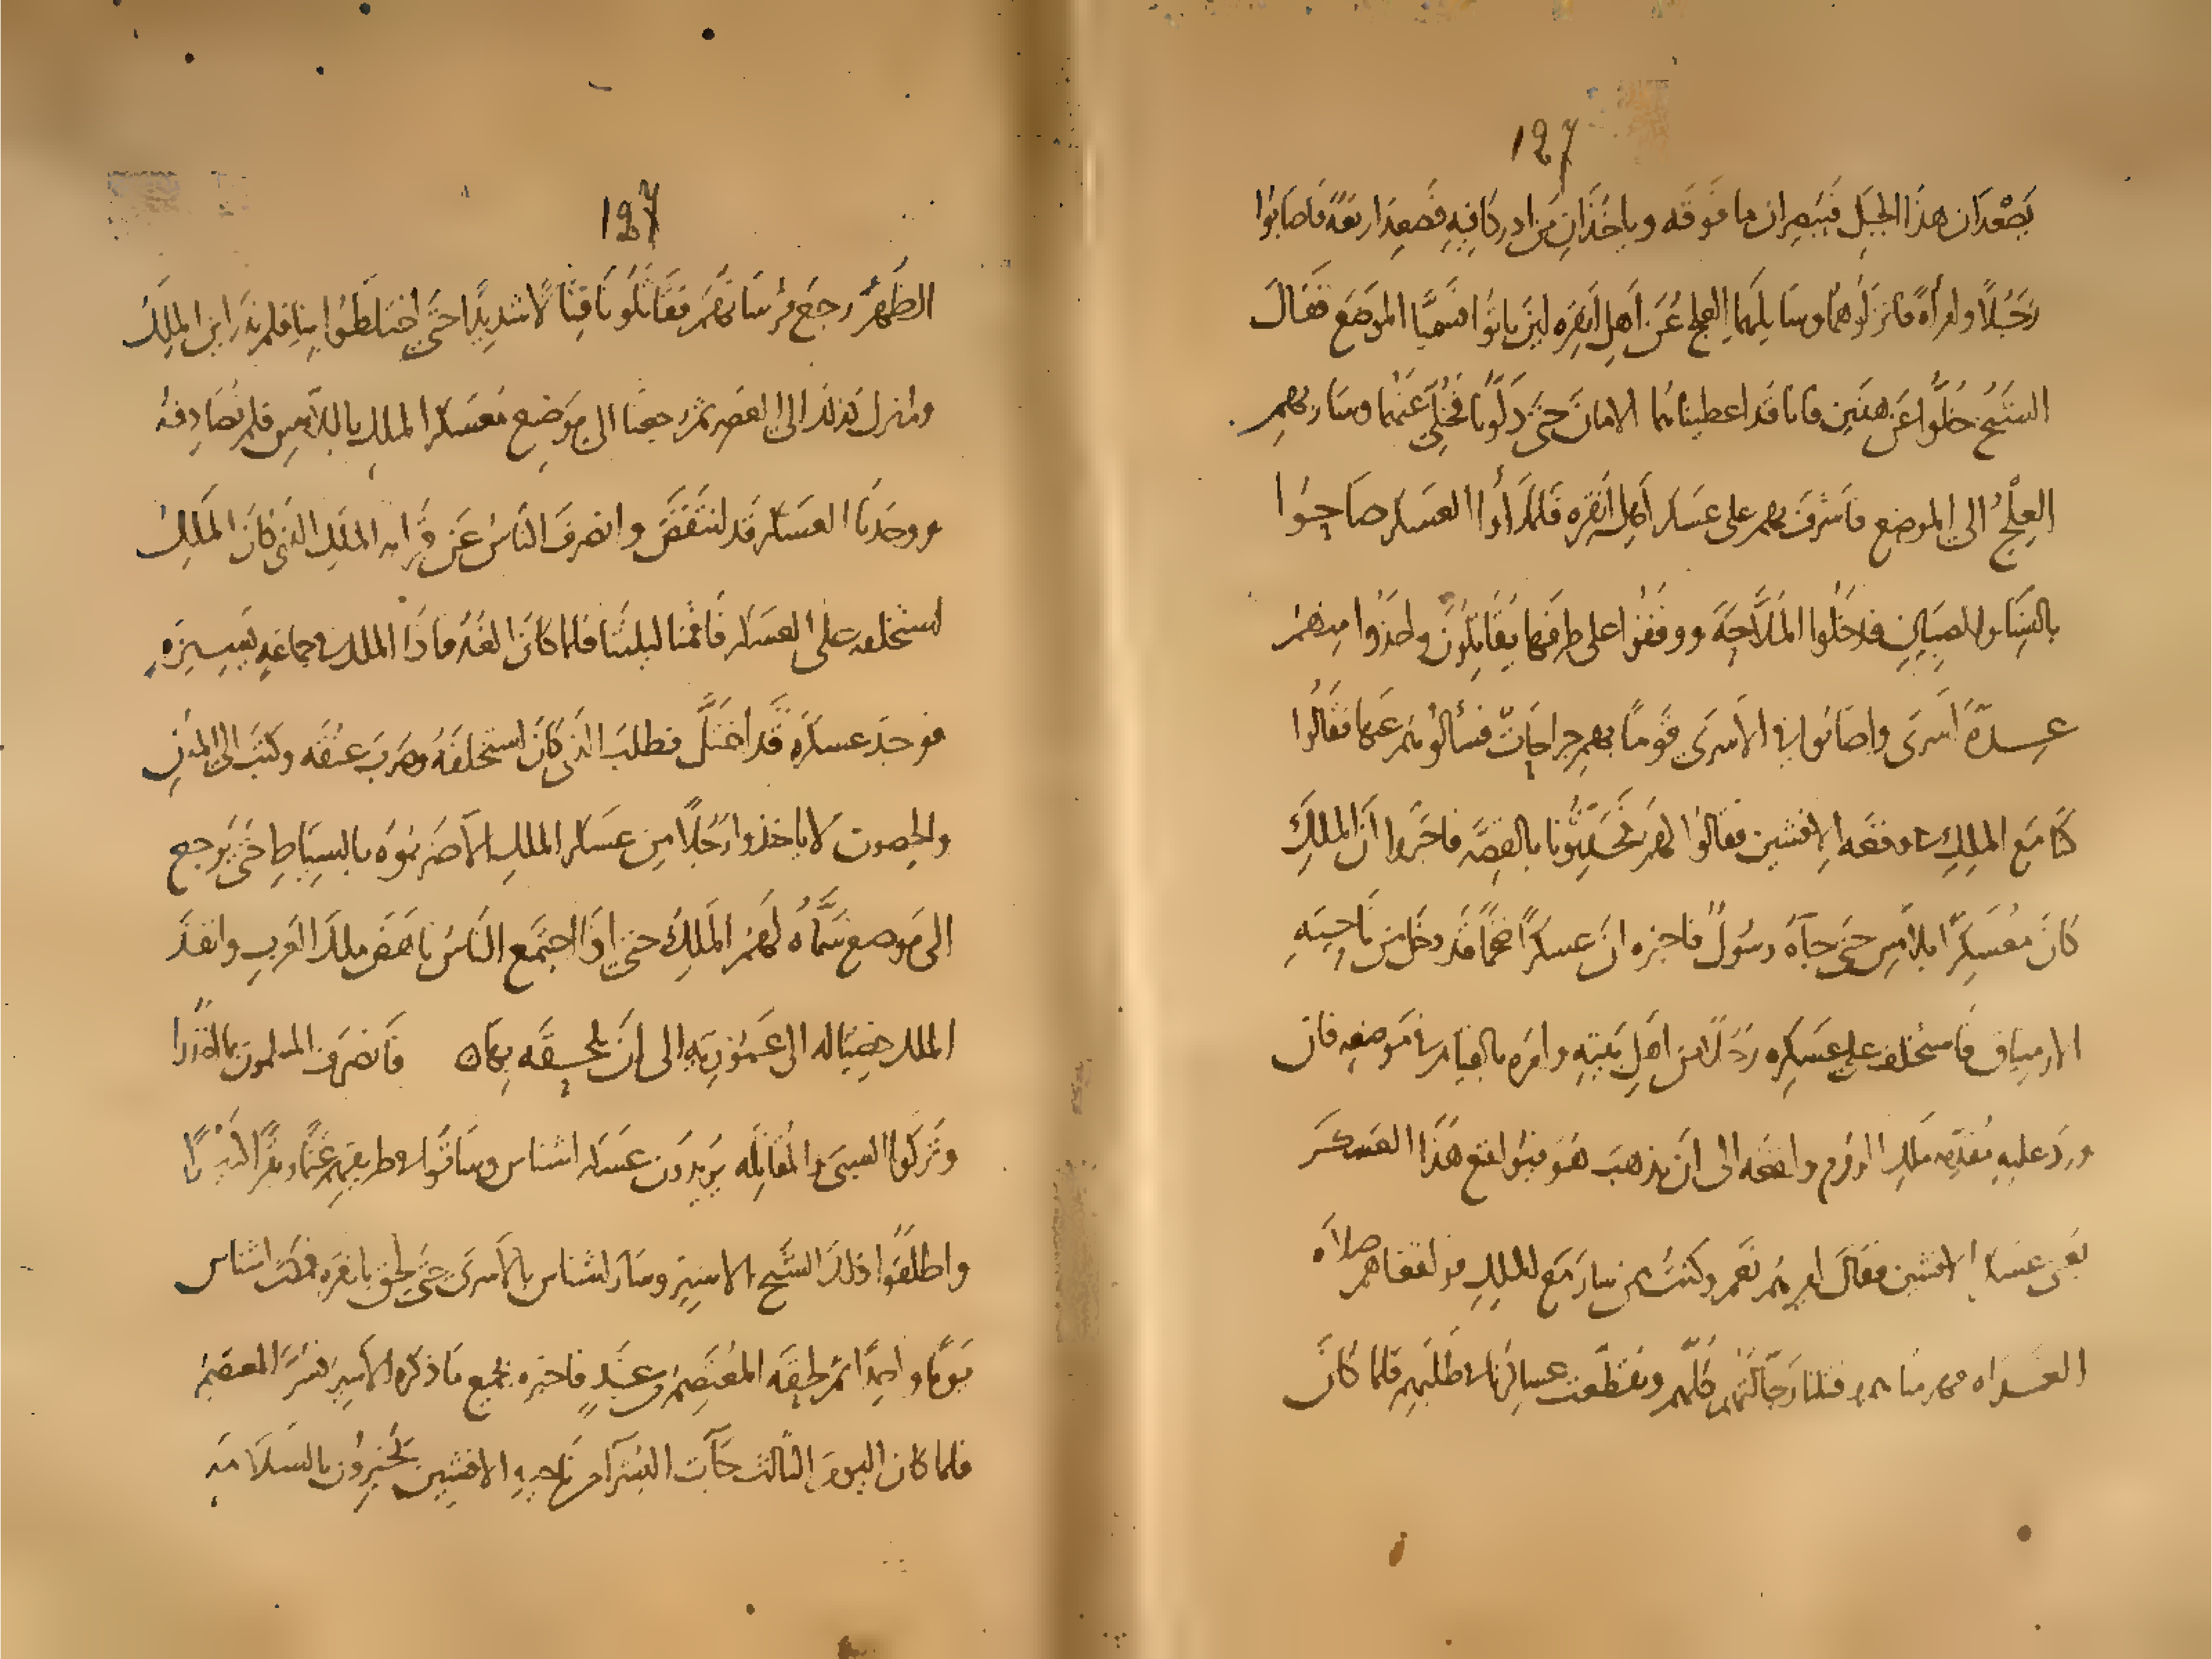 127
يَصْعَدَان هذا الجبل فيُبصِران ما فوقه وياخُذان من ادركا فيه فصَعِدَ اربَعَة فاصابوا
رَجُلاً وامرأة فانزلوهما وسايلهما العِلج عَن اهل انقره اين باتُوا فسَميَّا الموضع فقال
الشيخ خلُّوا عَن هذين فانا قد اعطيناهما الامان حتى دلّونا فخُلِّى عَنهُما وسار بهم
العِلْجُ الى الموضع فاشرف بهم على عسكر اهل انقره فلما رأوا العسكر صاحُوا
بالنِساء والصبيان فدخلوا المَلّاحَة ووقفوا على طرفها يُقَاتلُونَ واخذوا منهم
عِدّةً اَسرَى واصابُوا في الاسرى قومًا بهم جراحَاتٌ فسألوُهم عنها فقالُوا
كُنّا مَع الملِكِ في وقعَه الافشين فقالوا لهم بالقصَّه فاخبَروا انَّ الملك
كانَ مُعَسكِرًا حتى جآهُ رسُولٌ فاخبره انَّ عسكرًا ضخمًا قد دخل من نَاحيَه
الارمنياق فاستخلف على عسكره رَجُلاً من اهل بَيتِه وامَره بالقيام في مَوضعِه فان
ورَدَ عليه مُقَدّمه مَلِك الرُوم واقعَه الى ان يذهَبَ هُوَ فيُواقع هَذا العَسكر
يَعني عسكر الافشين فقالَ اميرهم نعَم وكنتُ ممن سَارَ مَع الملِكِ فواقعناهم صلاَة
الغَداه فهزمناهم وقتلنا رَجّالتَهُم كُلّهم وتقطّعت عساكِرُنا في طَلبِهم فلما كانَ
127
الظُهرُ رجعَ فُرسَانهُم فقَاتَلُونَا قتَالاً شديدًا حتى اختلَطُوا بنا فلم نَدرِ اين الملِكُ
ولم نزل كذلك الى العَصر ثمّ رجعنا الى مَوضِع مُعَسكر الملِكِ فلم نصَادِفهُ
ووجدنَا العسَاكِر قد انتَقَضَتْ وانصرفَ الناسُ عَن قرابه الملِك الذي كان الملِكُ
استخلفه على العسكر فاقمنا ليلتنا فلما كانَ الغَدُ وَافَانا الملك في جماعَهٍ يَسيرَهٍ
فوَجَدَ عسكرَه قَد اختَلَّ فطلبَ الذي كان استخلفَهُ وضَرَبَ عنُقَه وكتَبَ الى المدُنِ
والحصون الا ياخذوا رَجُلاً مِن عسكر الملك الا ضرَبُوه بالسِيَاطِ حتى يَرجع
الى مَوضع سَمَّاهُ لَهُمُ الملِكُ حتى اذا اجتمع الناسُ ناهَضَ ملكَ العَرب وانفذَ
الملك خَصيًا له الى عَمُّوريّه الى اَن يلحقَه بها ٥ فَانصَرَف المسلمون بما اخذوا
وتَركُوا السبىَ والمُقاتِلَه يريدون عسكر اشناس وسَاقُوا في طريقهم غَنمًا وبقَرًا كثيرًا
واطلقُوا ذلك الشيخ الاسير وسَارَ اشناس بالاسرَى حتى لحق بانقره فمكث اشناس
يَومًا واحِدًا ثمّ لحِقَه المُعتَصِم من غَدٍ فاخبره بجميع مَا ذكرَه الاسير فسُرَّ المعتصِم
فلما كان اليومَ الثالث جآت البُشرآ من نَاحيهِ الافشين يُخبِرُون بالسَلاَمه